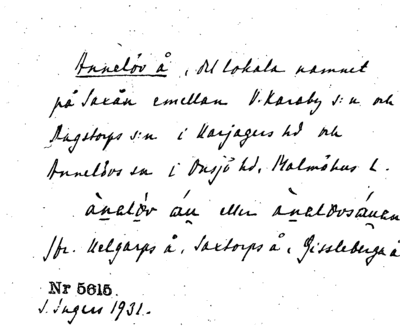 Annelöv å, det lokala namnet
på Saxån emellan V. Karaby s:n och
Dagstorps s:n i Harjagers hd och
Annelövs sn i Onsjö hd, Malmöhus l.
ànalöv án eller ànalövsánan
jfr. Helgarps å, Saxtorps å, Gissleberga å
Nr 5615.
S. Ingers 1931.